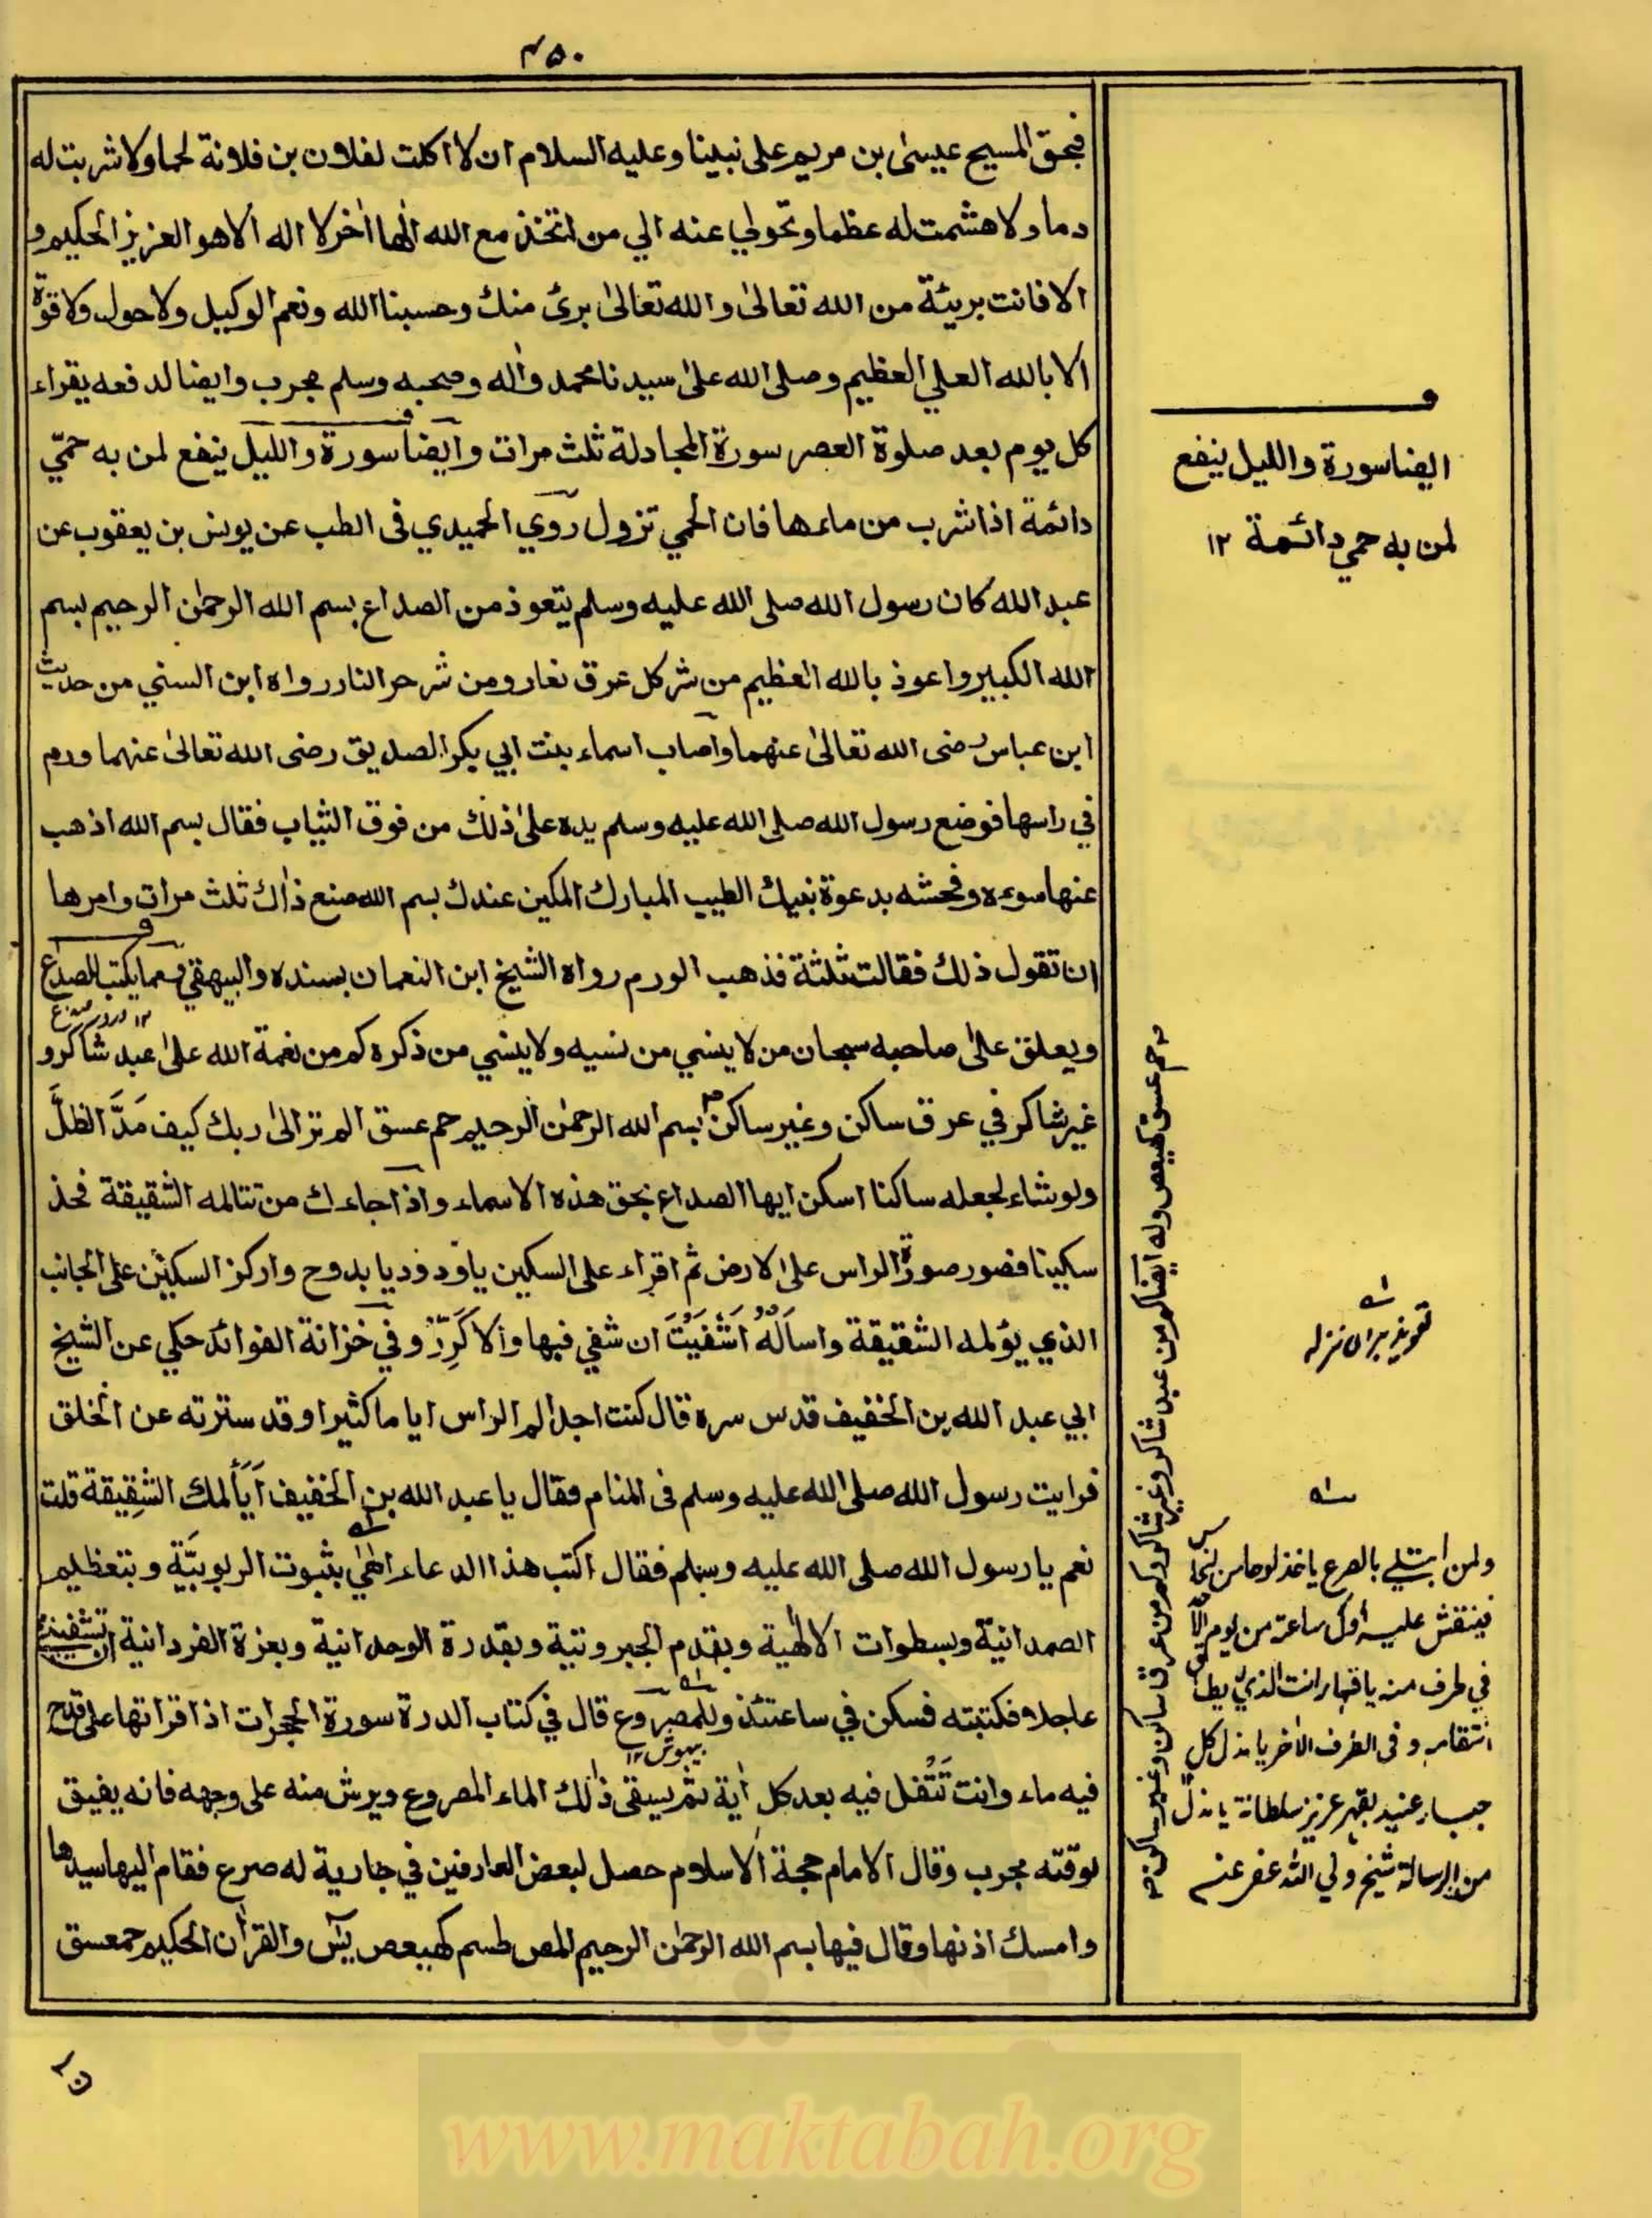 ۴۵۰
فبحق المسيح عيسىٰ بن مريم على نبينا وعليه السلام ان لا اكلت لفلان بن فلانة لحما ولا شربت له
دما ولا هشمت له عظما وتحولي عنه الي من اتخذ مع الله الٰها اٰخر لا اله الا هو العزيز الحكيم و
الا فانت بريئة من الله تعالىٰ والله تعالىٰ برئ منك وحسبنا الله ونعم الوكيل ولا حول ولا قوة
الا بالله العلي العظيم وصلى الله علىٰ سيدنا محمد واٰله وصحبه وسلم مجرب وايضا لدفعه يقراء
كل يوم بعد صلوة العصر سورة المجادلة ثلث مرات وايضا سورة والليل ينفع لمن به حمّي
دائمة اذا شرب من ماءها فان الحمي تزول روي الحميدي فى الطب عن يونس بن يعقوب عن
عبد الله كان رسول الله صلى الله عليه وسلم يتعوذ من الصداع بسم الله الرحمٰن الرحيم بسم
الله الكبير واعوذ بالله العظيم من شر كل عرق نعار ومن شر حر النار رواه ابن السني من حديث
ابن عباس رضى الله تعالىٰ عنهما واصاب اسماء بنت ابي بكر الصديق رضى الله تعالىٰ عنهما ورم
في راسها فوضع رسول الله صلى الله عليه وسلم يده علىٰ ذلك من فوق الثياب فقال بسم الله اذهب
عنها سوءه وفحشه بدعوة نبيك الطيب المبارك المكين عندك بسم الله صنع ذٰاك ثلث مرات وامرها
ان تقول ذلك فقالت ثلثة فذهب الورم رواه الشيخ ابن النعمان بسنده والبيهقي ومما يكتب للصداع
ويعلق علىٰ صاحبه سبحان من لا ينسي من نسيه ولا ينسي من ذكره كم من نعمة الله علىٰ عبد شاكر و
غير شاكر في عرق ساكن وغير ساكن بسم الله الرحمٰن الرحيم حم عسق الم تر الىٰ ربك كيف مَدَّ الظلَّ
ولو شاء لجعله ساكنا اسكن ايها الصداع بحق هذه الاسماء واذا جاءك من تتالمه الشقيقة فخذ
سكينا فصور صورة الراس علىٰ الارض ثم اقراء على السكين يا ودود يا بدوح واركز السكين على الجانب
الذي يؤلمه الشقيقة واساَلهُ اَشُفيْتَ ان شفي فبها والا كَرِّرْ وفي خزانة الفوائد حكي عن الشيخ
ابي عبد الله بن الخفيف قدس سره قال كنت اجد الم الراس اياما كثيرا وقد سترته عن الخلق
فرايت رسول الله صلى الله عليه وسلم فى المنام فقال يا عبد الله بن الخفيف اَيَاَلمك الشقِيقة قلت
نعم يا رسول الله صلى الله عليه وسلم فقال اكتب هذا الدعاء الٰهي بثبوت الربوبيَّة وبتعظيم
الصمدانية وبسطوات الالٰهية وبقدم الجبروتية وبقدرة الوحدانية وبعزة الفردانية ان تشفيني
عاجلا فكتبته فسكن في ساعتئذ وللمصروع قال في كتاب الدرة سورة الحجرات اذا قراتها على قدح
بيهوش ۱۲
فيه ماء وانت تَتْفل فيه بعد كل اٰية ثم يسقى ذٰلك الماء المصروع ويرش منه على وجهه فانه يفيق
لوقته مجرب وقال الامام حجة الاسلام حصل لبعض العارفين في جارية له صرع فقام اليها سيدها
وامسك اذنها وقال فيها بسم الله الرحمٰن الرحيم المص طسم كهيعص يٰس والقراٰن الحكيم حمعسق
ايضا سورة والليل ينفع
لمن به حمي دائمة ۱۲
حم عسق كهيعص وله ايضا كم من عبد شاكر وغير شاكر وكم من عرق ساكن وغير ساكن
تعويذ براى نزله
ولمن ابتلي بالصرع ياخذ لوحا من نحاس
فينقش عليه اول ساعة من يوم الاحد
في طرف منه يا قهار انت الذي لا يطاق
انتقامه وفى الطرف الاٰخر يا مذل كل
جبار عنيد بقهر عزيز سلطانه يا مذل
من الرسالة شيخ ولي الله عفر عنه
www.maktabah.org